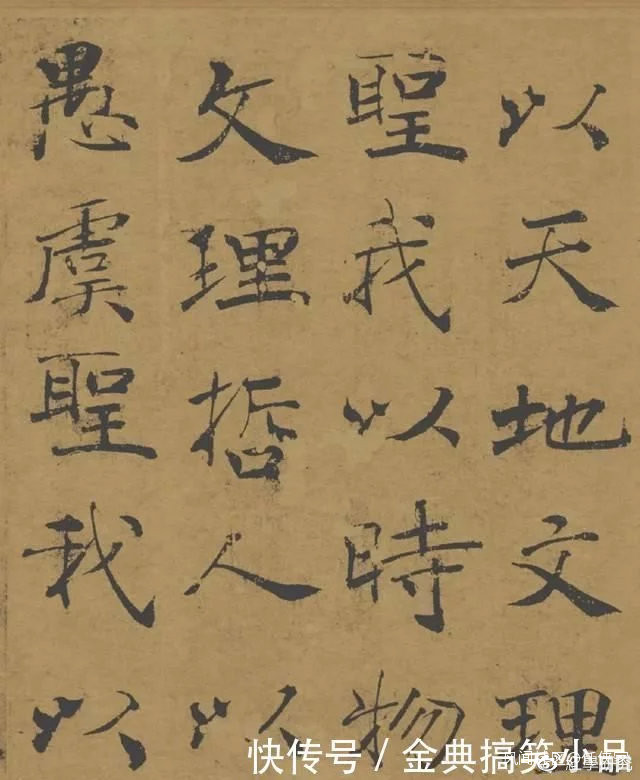 以天地文理
聖我以時物
文理哲人以
愚虞聖我以
快传号／金典搞笑小品